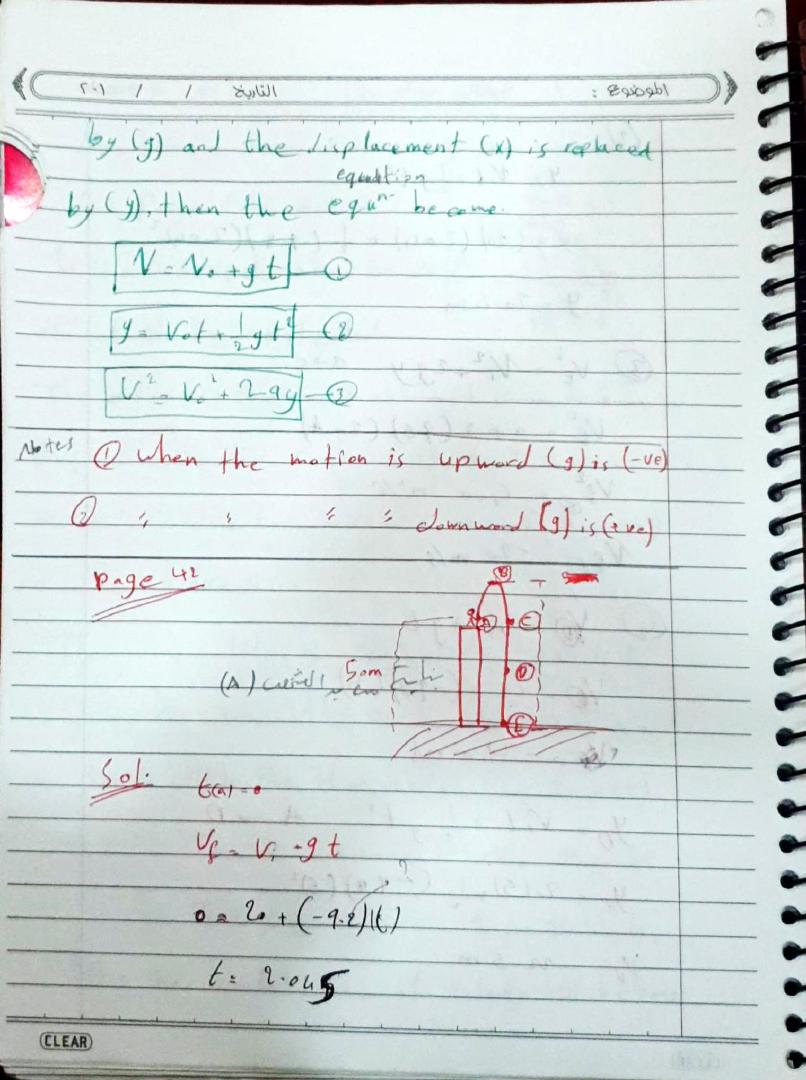 الموضوع : التاريخ / / ٢٠١
by (g) and the displacement (x) is replaced
equation
by (y), then the equⁿ· become.
V = V₀ + g t ①
y = V₀t + 1/2 g t² ②
V² = V₀² + 2gy ③
Notes ① when the motion is upword (g) is (-ve)
② " " " " downword [g] is (+ve)
page 42
B
A C
50m
(A)
D
E
Sol.
t(a) = 0
Vf = Vi - g t
?
0 = 20 + (-9.8)(t)
t = 2.04 s
CLEAR